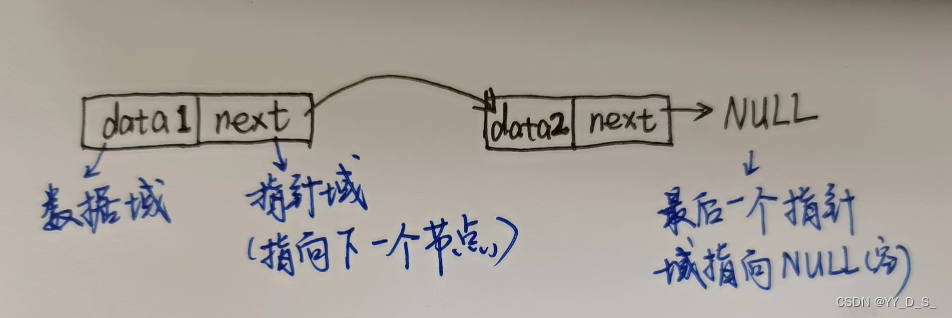 data1 next data2 next NULL
数据域 指针域 最后一个指针
(指向下一个节点) 域指向NULL(空)
CSDN @YY_D_S_